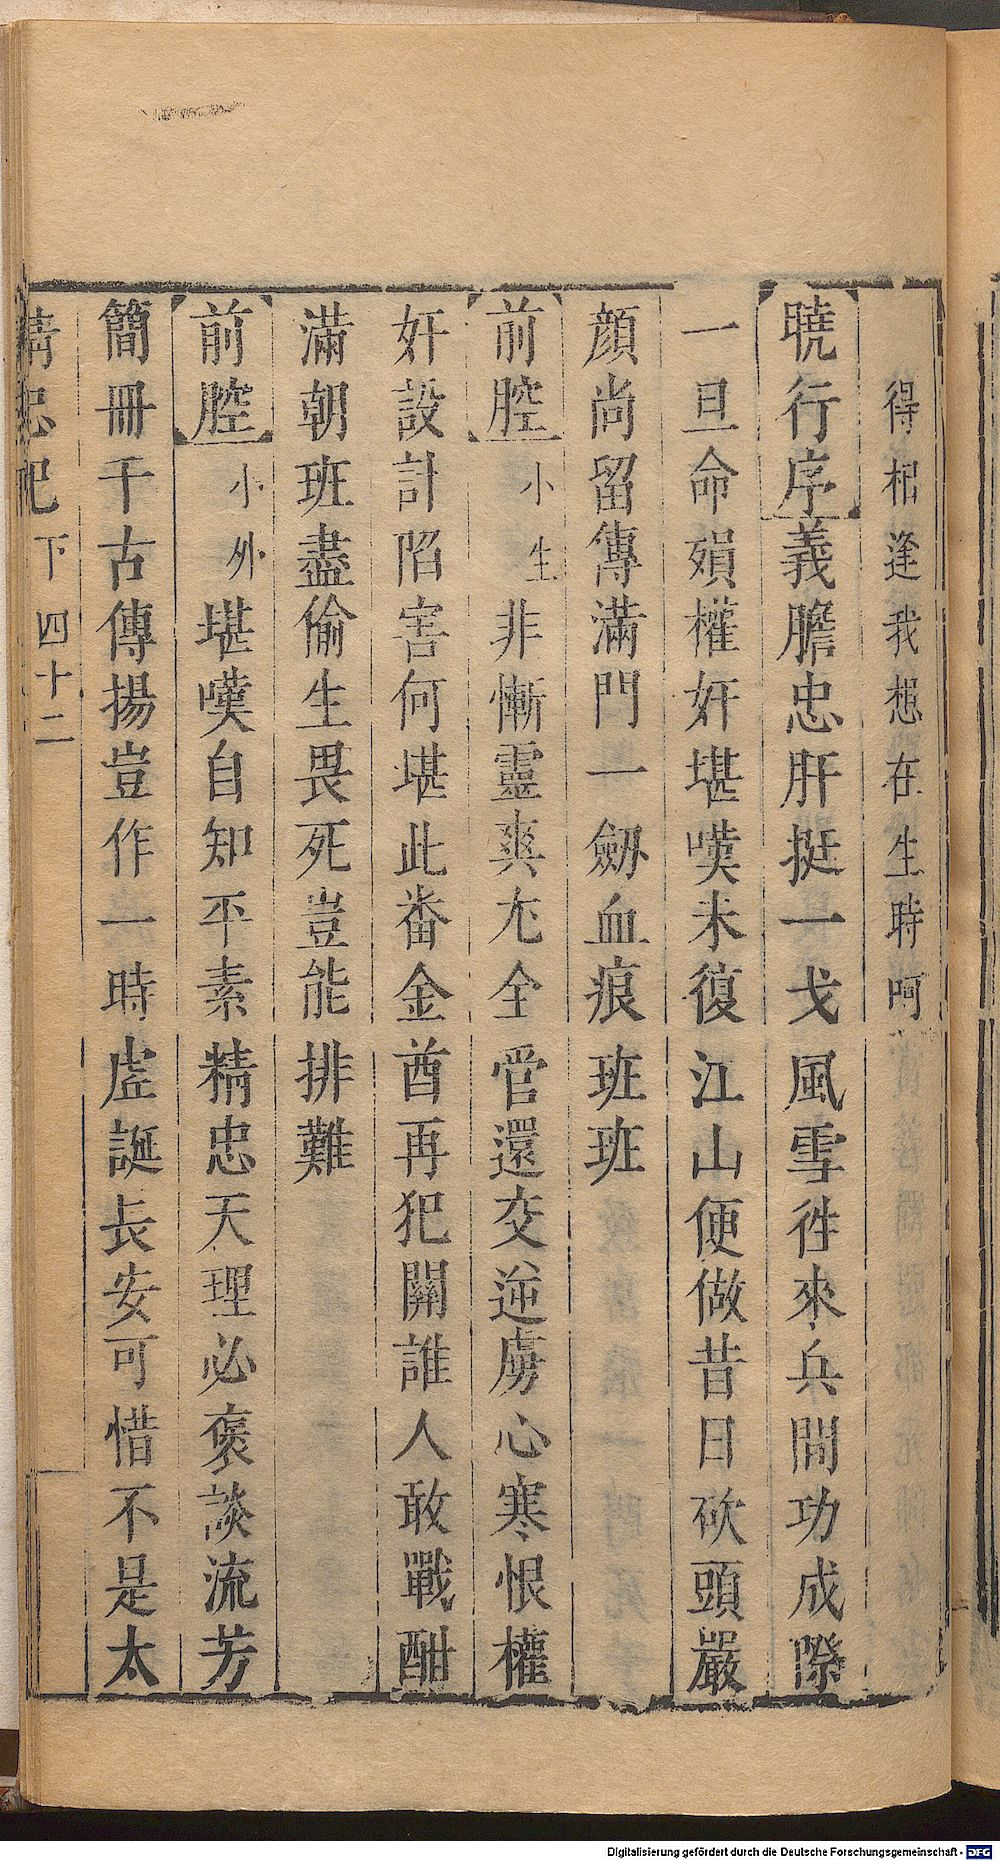 得相逢我想在生時呵
曉行序義膽忠肝挺一戈風雪徃來兵間功成際
一旦命殞權奸堪嘆未復江山便做昔日砍頭嚴
顔尚留傳滿門一劒血痕班班
前腔小生非慚靈爽尢全営還交逆虜心寒恨權
奸設計陷害何堪此番金酋再犯關誰人敢戰酣
滿朝班盡偷生畏死豈能排難
前腔小外堪嘆自知平素精忠天理必褒談流芳
簡冊千古傳揚豈作一時虛誕長安可惜不是太
精忠記下 四十二
Digitalisierung gefördert durch die Deutsche Forschungsgemeinschaft - DFG